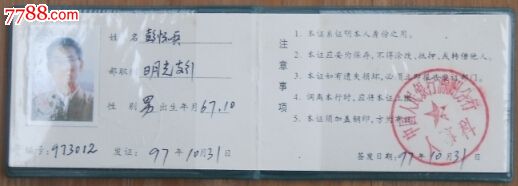 7788.com
姓名
部职
明光支行
性别 男 出生年月 67.10
编号: 973012 发证: 97年10月31日
注意事项
1. 本证系证明本人身份之用。
2. 本证应妥为保存,不得涂改、抵押、或转借他人。
3. 本证如有遗失损坏,必须立即报告发证部门。
4. 调离本行时,应将本证
5. 本证须加盖钢印,方为有效。
中国人民银行滁州分行
人事科
签发日期: 97年10月31日